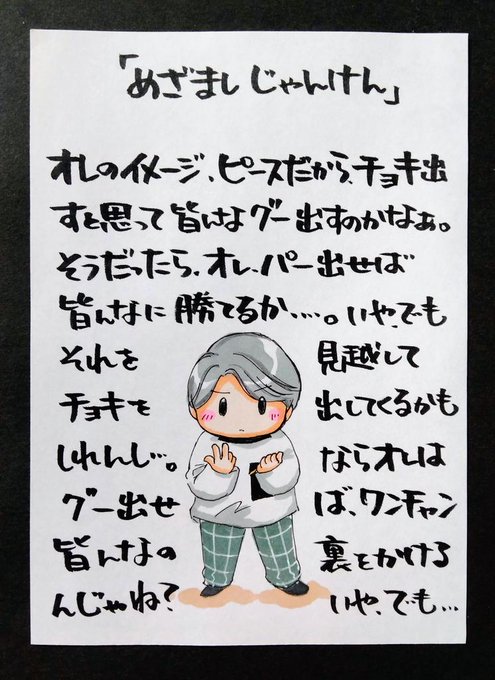 「めざましじゃんけん」
オレのイメージ、ピースだから、チョキ出
すと思って皆んなグー出すのかなぁ。
そうだったら、オレ、パー出せば
皆んなに勝てるか……。いや、でも
それを見越して
チョキを出してくるかも
しれんし…。ならオレは
グー出せば、ワンチャン
皆んなの裏をかける
んじゃね？いや、でも…